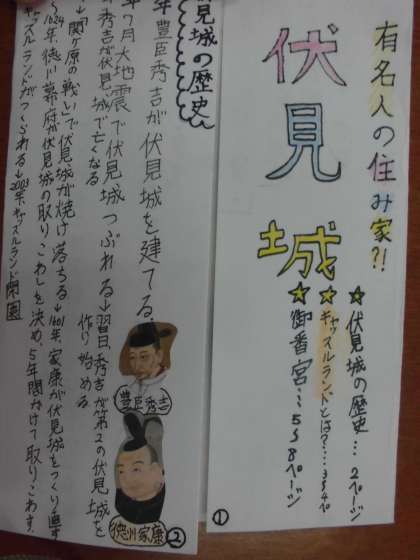 有名人の住み家?!
伏見城
★伏見城の歴史…2ページ
★キャッスルランドとは?…3〜4ペ
★御香宮…5〜8ページ
①
伏見城の歴史
年豊臣秀吉が伏見城を建てる。
年7月大地震で伏見城つぶれる→翌日、秀吉が第2の伏見城を
作り始める
秀吉が伏見城で亡くなる
→関ヶ原の戦いで伏見城が焼け落ちる→1601年、家康が伏見城をつくり直す
年、徳川幕府が伏見城の取りこわしを決め、5年間かけて取りこわす。
キャッスルランドがつくられる→2003年、キャッスルランド閉園
豊臣秀吉
徳川家康
②